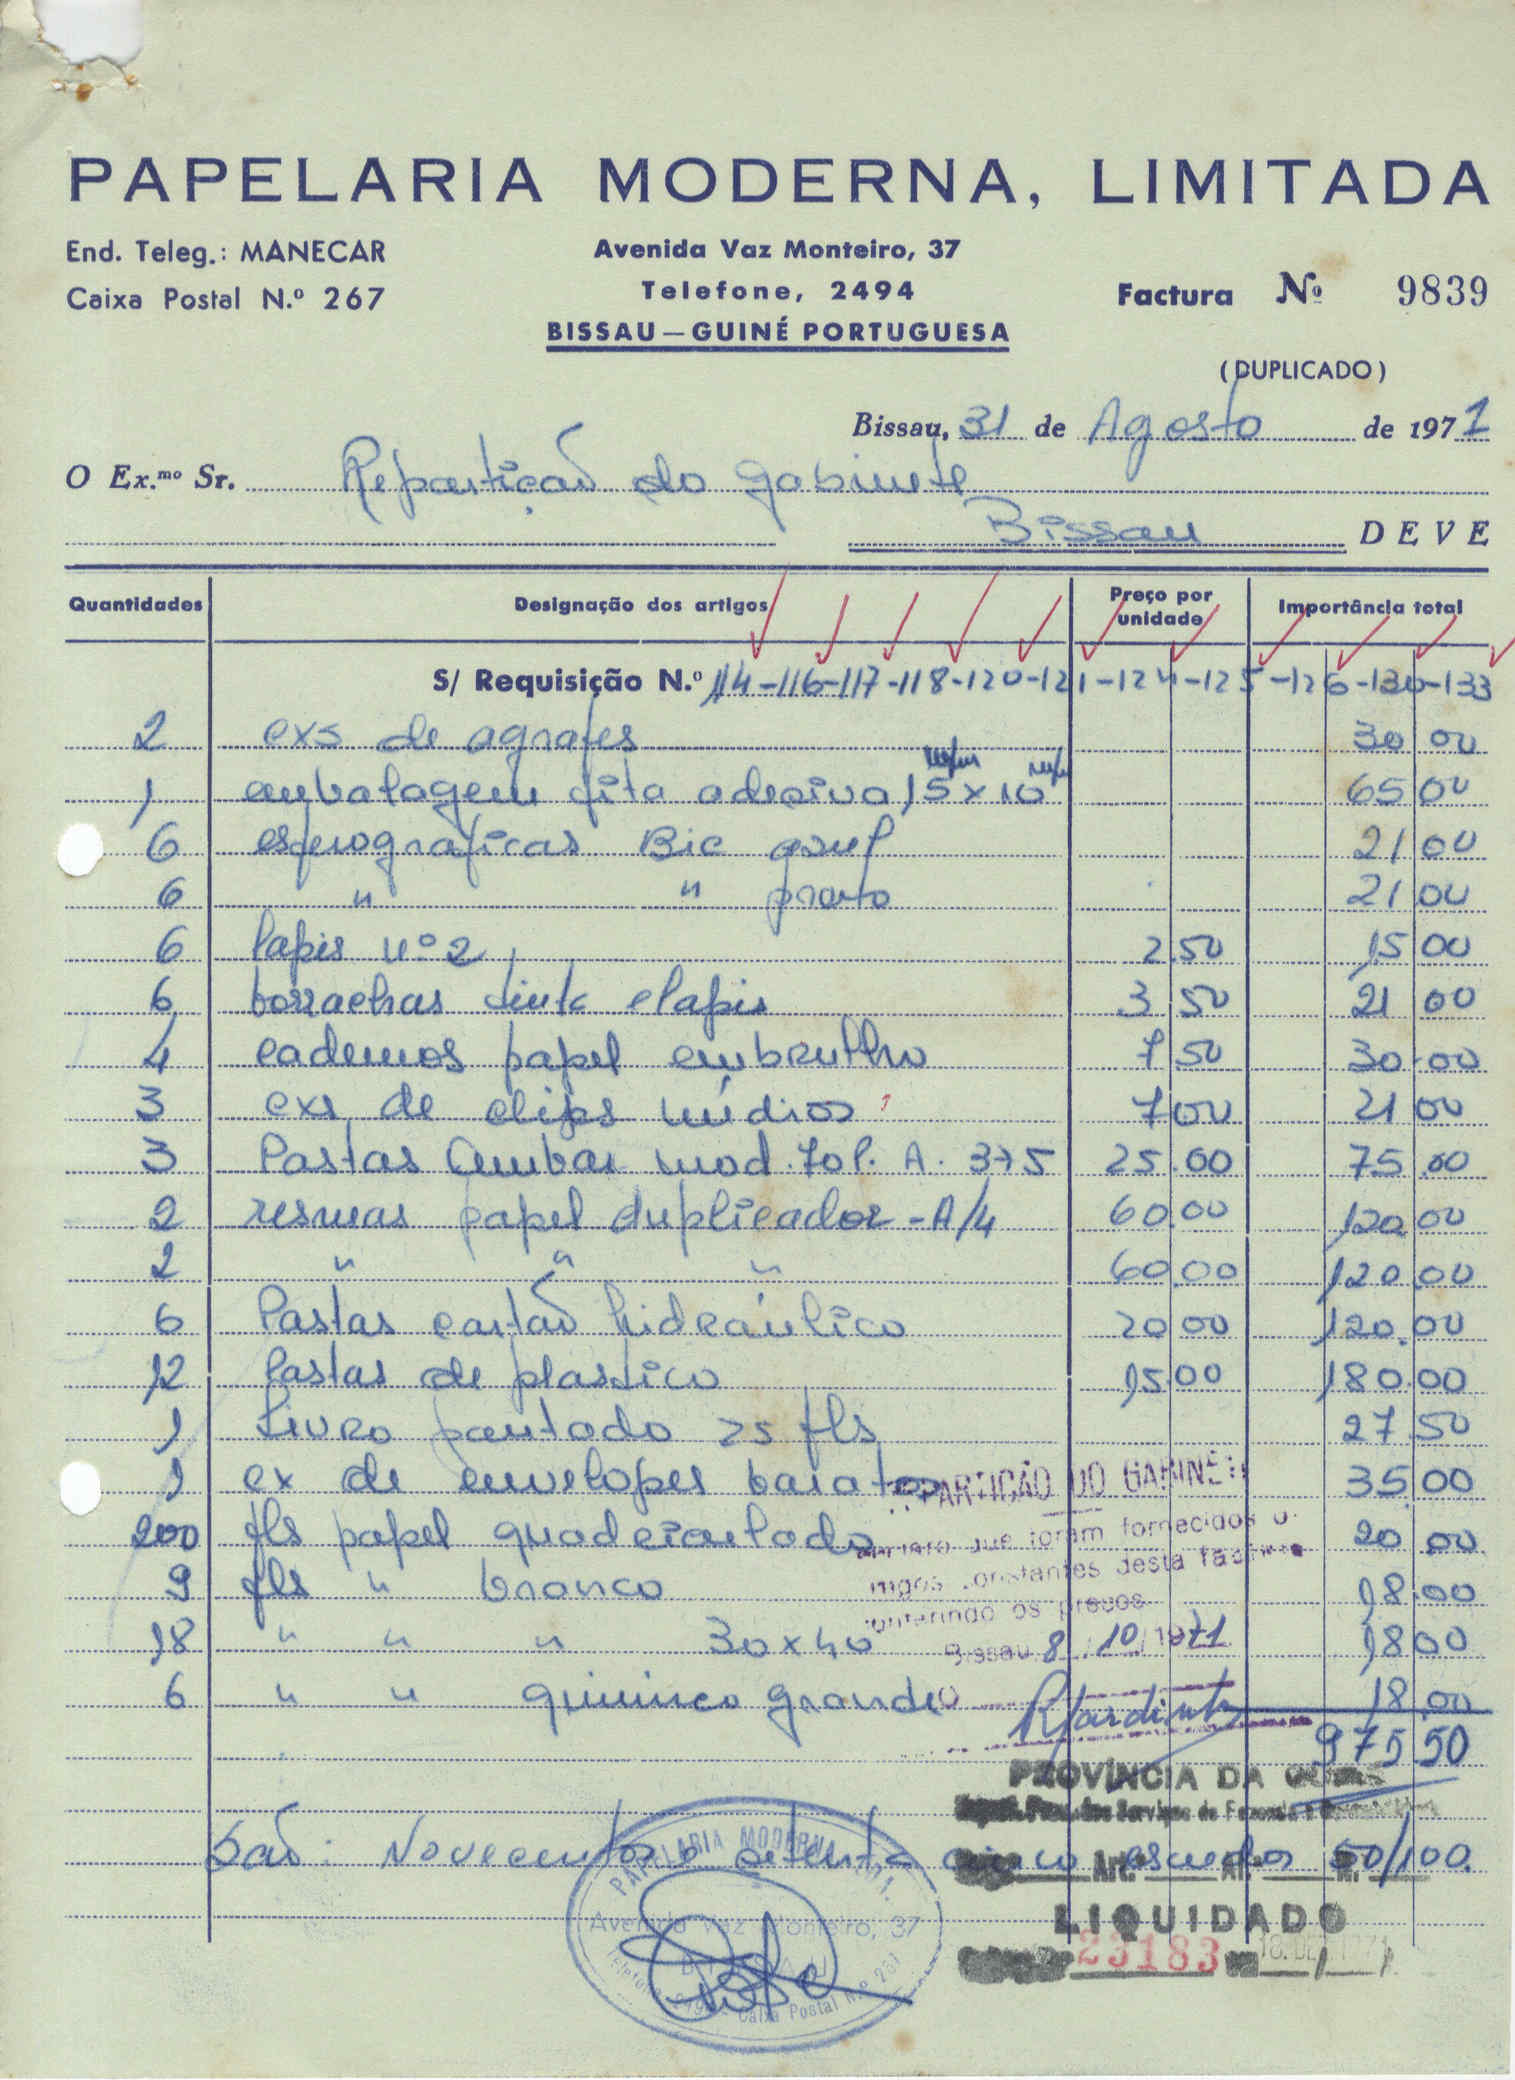 PAPELARIA MODERNA, LIMITADA
End. Teleg.: MANECAR
Caixa Postal N.º 267
Avenida Vaz Monteiro, 37
Telefone, 2494
BISSAU — GUINÉ PORTUGUESA
Factura Nº 9839
(DUPLICADO)
Bissau, 31 de Agosto de 1971
O Ex.mo Sr. Repartição do Gabinete
Bissau DEVE
Quantidades Designação dos artigos Preço por unidade Importância total
S/ Requisição N.º 114-116-117-118-120-121-124-125-126-130-133
2 exs de agrafes 30 00
1 embalagem fita adesiva 15 m/m x 10 m/ 65 00
6 esferograficas Bic azul 21 00
6 " " preto 21 00
6 lapis nº 2 2.50 15 00
6 borrachas tinta e lapis 3 50 21 00
4 cadernos papel embrulho 7 50 30.00
3 exs de clips médios 7 00 21 00
3 Pastas Ambar mod. fol. A. 375 25.00 75.00
2 resmas papel duplicador - A/4 60.00 120 00
2 " " " 60.00 120.00
6 Pastas cartão hidraúlico 20 00 120.00
12 Pastas de plastico 15 00 180.00
1 Livro pautado 25 fls 27.50
1 ex de envelopes baratos 35 00
200 fls papel quadriculado 20 00
9 fls " branco 18.00
18 " " " 30x40 18 00
6 " " quimico grande 18.00
975 50
REPARTIÇÃO DO GABINETE
que foram fornecidos o
constantes desta factura
conferindo os preços
Bissau 8/10/1971
PROVÍNCIA DA
dos Serviços de Fazenda e
São: Novecentos e setenta e cinco escudos 50/100.
Art.
LIQUIDADO
23183 18. DEZ 1971
PAPELARIA MODERNA, LDA.
Avenida Vaz Monteiro, 37
BISSAU
Caixa Postal N.º 267